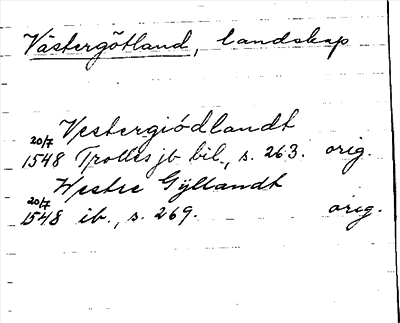 Västergötland, landskap
Vestergiödlandt
20/7 1548 Trolles jb bil., s. 263. orig.
Westre Gÿllandt
20/7 1548 ib., s. 269. orig.